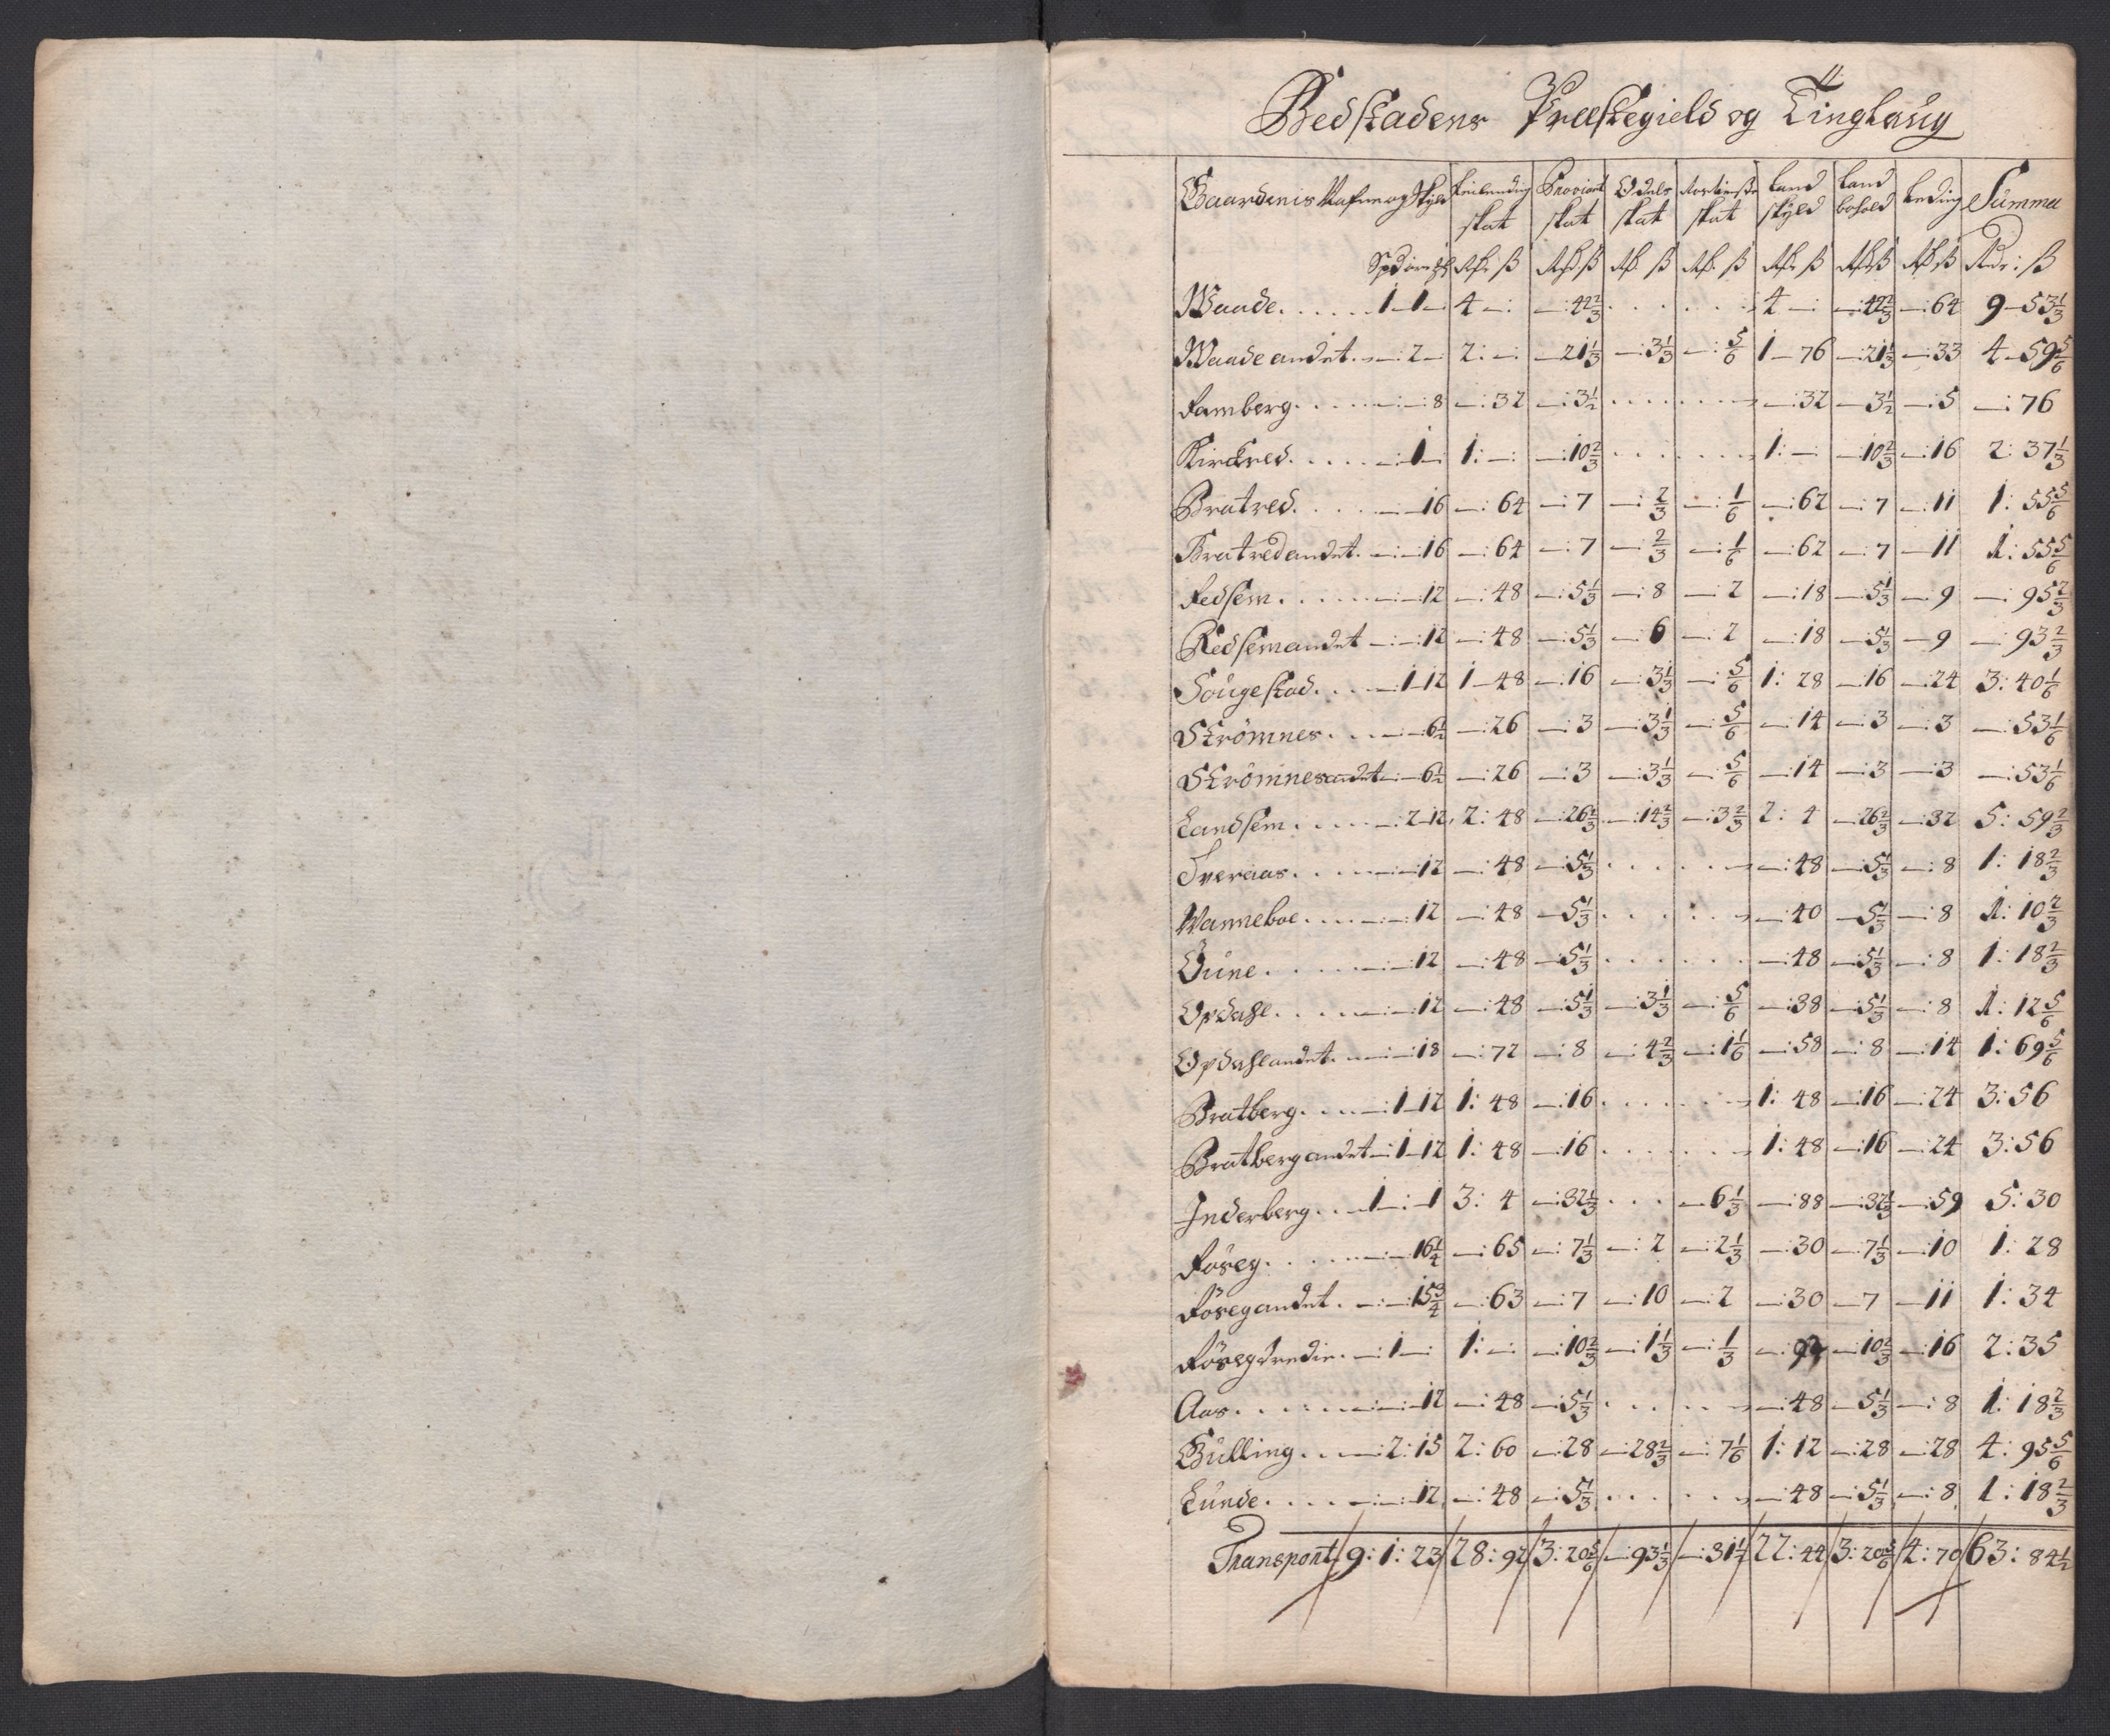 Bedstadens Præstegield og Tinglaug
Gaardenis Nafne og Skyld Leilending skat Proviant skat Odels skat Rostieniste skat Land skyld Land bohold Leding Summa
Spd øre ß Rdr ß Rdr ß Rdr ß Rdr ß Rdr ß Rdr ß Rdr ß Rdr: ß
Waade. . . . . . 1-1- 4 -: -:42 2/3 . . . . . 4 -: -:42 2/3 -:64 9-53 1/3
Waade andet. -:2- 2: -: -21 1/3 -:3 1/3 -: 5/6 1-76 -:21 1/3 -:33 4-59 5/6
Ramberg. . . . . -:-:8 -:32 -:3 1/2 . . . . . -:32 -3 1/2 -:5 -:76
Kirckred. . . . . -:1- 1: -: -:10 2/3 . . . . . 1: -: -:10 2/3 -:16 2: 37 1/3
Bratred. . . . . -:-16 -:64 -:7 -: 2/3 -: 1/6 -:62 -:7 -:11 1: 55 5/6
Bratred andet. -:-16 -:64 -:7 -: 2/3 -: 1/6 -:62 -:7 -11 1: 55 5/6
Redsem. . . . . -:-:12 -:48 -:5 1/3 -:8 -:2 -:18 -:5 1/3 -:9 -:95 2/3
Redsem andet -:-:12 -:48 -:5 1/3 -:6 -:2 -:18 -:5 1/3 -9 -:93 2/3
Søugestad. . . . -:1-12 1-48 -:16 -:3 1/3 -: 5/6 1: 28 -:16 -:24 3: 40 1/6
Strömnes. . . . -:-:6 1/2 -:26 -:3 -:3 1/3 -: 5/6 -:14 -:3 -:3 -:53 1/6
Strömnes andet -:-6 1/2 -:26 -:3 -:3 1/3 -: 5/6 -:14 -:3 -:3 -:53 1/6
Landsem. . . . . -:2-12 2: 48 -:26 2/3 -:14 2/3 -:3 2/3 2: 4 -:26 2/3 -:32 5: 59 2/3
Tveraas. . . . . -:-:12 -:48 -:5 1/3 . . . . . -:48 -:5 1/3 -:8 1: 18 2/3
Wanneboe. . . . -:-:12 -:48 -:5 1/3 . . . . . -:40 -:5 1/3 -:8 1: 10 2/3
Oüne. . . . . -:-:12 -:48 -:5 1/3 . . . . . -:48 -:5 1/3 -:8 1: 18 2/3
Opdahl. . . . . -:-:12 -:48 -:5 1/3 -:3 1/3 -: 5/6 -:38 -:5 1/3 -:8 1: 12 5/6
Opdahl andet. -:-:18 -:72 -:8 -:4 2/3 -:1 1/6 -:58 -:8 -:14 1: 69 5/6
Bratberg. . . . -:1-12 1: 48 -:16 . . . . . 1: 48 -:16 -:24 3: 56
Bratberg andet -:1-12 1: 48 -:16 . . . . . 1: 48 -:16 -:24 3: 56
Inderberg. . . 1 : -1 3: 4 -:32 1/3 . . . -6 1/3 -:88 -:32 1/3 -:59 5: 30
Röseg. . . . . -:-16 1/4 -:65 -:7 1/3 -:2 -:2 1/3 -:30 -:7 1/3 -:10 1: 28
Röseg andet. -:-:15 3/4 -:63 -:7 -:10 -:2 -:30 -7 -11 1: 34
Röseg tredie. -:1-: 1: -: -:10 2/3 -:1 1/3 -: 1/3 -:92 -:10 2/3 -:16 2: 35
Aas. . . . . -:-:12 -:48 -:5 1/3 . . . . . -:48 -:5 1/3 -:8 1: 18 2/3
Gülling. . . -:2:15 2: 60 -:28 -:28 2/3 -:7 1/6 1: 12 -:28 -:28 4: 95 5/6
Lünde. . . . . -:-:12 -:48 -:5 1/3 . . . . . -:48 -:5 1/3 -:8 1: 18 2/3
Transport 9: 1: 23 28: 92 3: 20 5/6 -:93 1/3 -:31 1/2 22: 44 3: 20 5/6 4: 70 63: 84 1/2